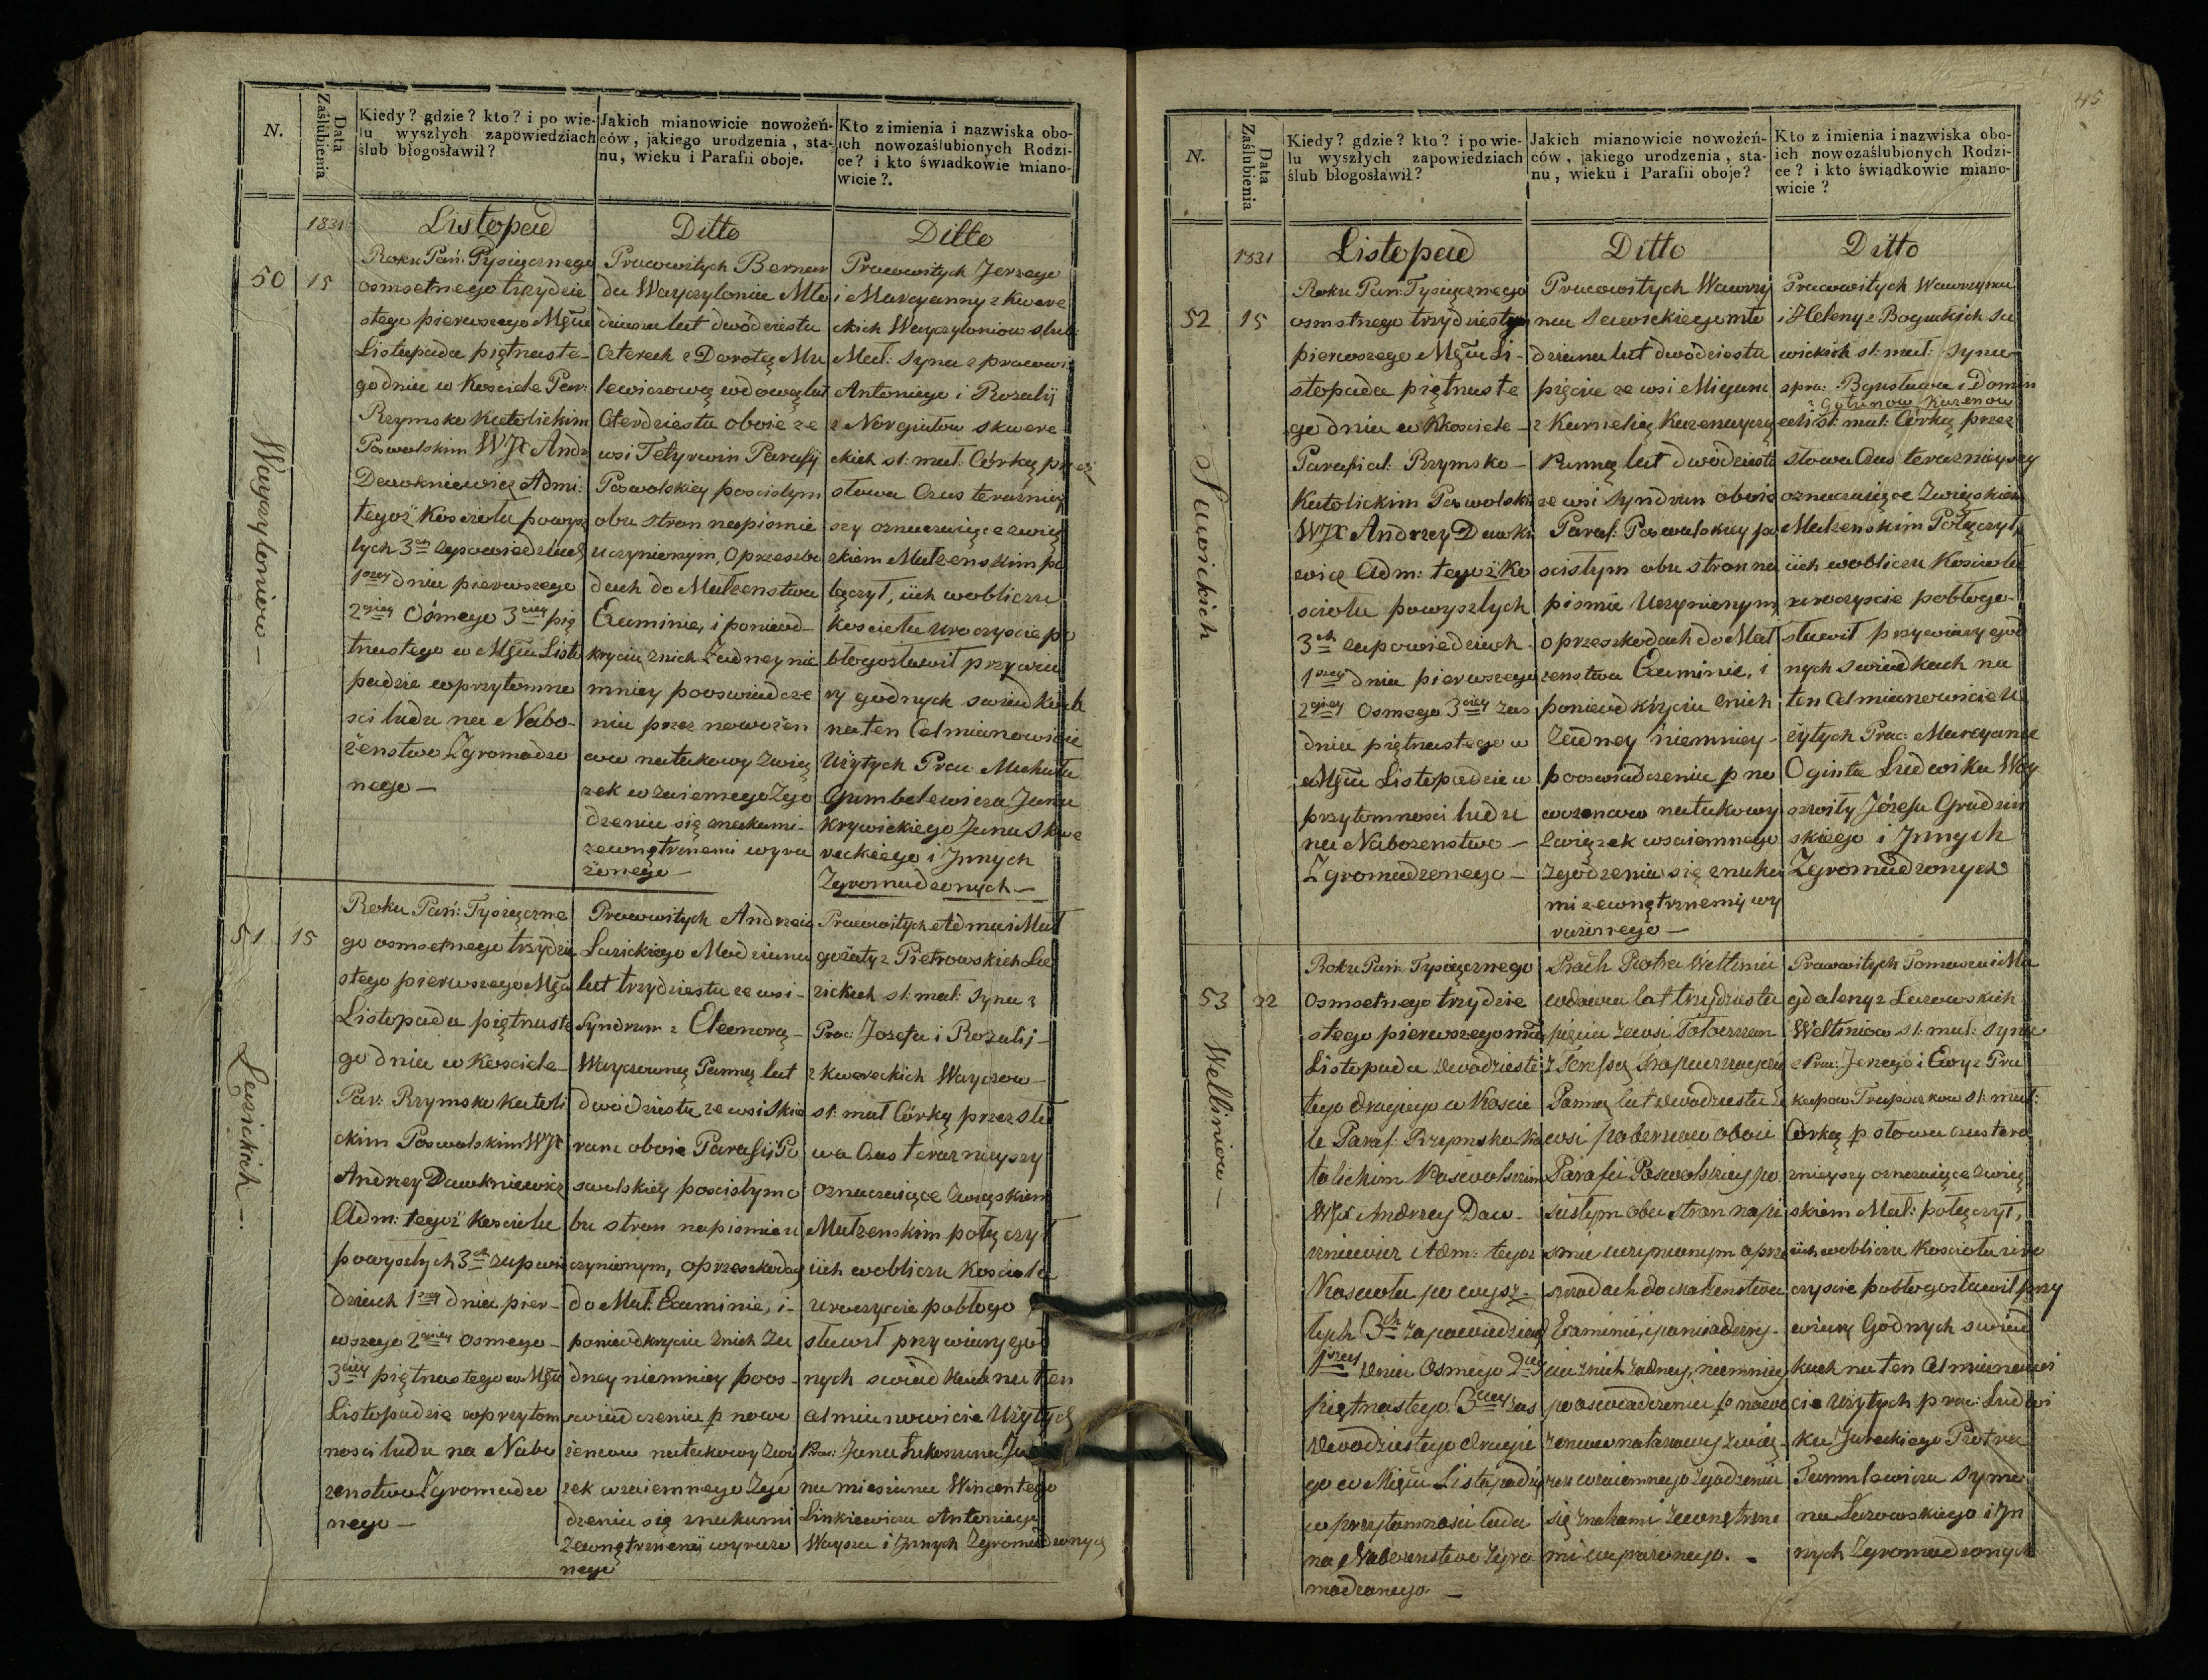 N.
Data Zaślubienia
Kiedy? gdzie? kto? i po wie-
lu wyszłych zapowiedziach
ślub błogosławił?
Jakich mianowicie nowożeń-
ców, jakiego urodzenia, sta-
nu, wieku i Parafii oboje.
Kto z imienia i nazwiska obo-
ich nowozaślubionych Rodzi-
ce? i kto świadkowie miano-
wicie?.
1831
Listopad
Ditto
Ditto
50
15
Wayszyloniow —
Roku Pań: Tysiącznego
osmsetnego trzydzie
stego pierwszego Mgca
Listopada piętnaste-
go dnia w Kosciele Par:
Rzymsko Katolickim
Poswolskim WJX Andr
Dawkniewicz Admi:
tegoż Kosciola powysz
łych 3ch zapowiedziach
1szey dnia pierwszego
2giey Osmego 3ciey pię
tnastego w Mgcu Listo
padzie w przytomno
sci ludu na Nabo-
żenstwo Zgromadzo
nego —
Pracowitych Bernar
da Wayszylonia Mło
dziana lat dwódziestu
Czterech z Dorotą Mu
lewiczową wdową lat
Czterdziestu oboie ze
wsi Tetyrwin Parafij
Poswolskiey poscisłym
obu stron napismie
uczynionym, o przeszko
dach do Małzenstwa
Examinie, i ponieod-
kryciu znich Zadney nie
mniey pooswiadcze
niu przez nowożen
cow natakowy Zwią
zek wzaiemnego Zgo
dzenia się znakami
zewnętrznemi wyra
żonego —
Pracowitych Jerzego
i Maryanny z Kwere
ckich Wayszyloniow slub:
Mał: Syna z pracowi:
Antoniego i Rozalij
z Norgiułow Skwere
ckich sł: mał: Córkę przez
słowa Czas teraźniey
szy oznaczaiące zwią
zkiem Małzenskim po
łączył, iich wobliczu
kościoła uroczyscie po
błogosławił przy wia
ry godnych swiadkach
naten Cel mianowicie
Użytych Prac: Michała
Gumbelewicza Jana
Krywickiego Jana Skwe
reckiego i Jnnych
Zgromadzonych —
51
15
Łazickich —
Roku Pań: Tysiączne
go osmsetnego trzydzie
stego pierwszego Mgca
Listopada piętnaste
go dnia w Kosciele
Par: Rzymsko Katoli
ckim Poswolskim WJX
Andrzey Dawkniewicz
Adm: tegoż Kosciola
powyszłych 3ch zapowie
dziach 1szey dnia pier-
wszego 2giey osmego
3ciey piętnastego w Mgcu
Listopadzie w przytom
nosci ludu na Nabo
zenstwo Zgromadzo
nego —
Pracowitych Andrzeia
Łazickiego Młodziana
lat trzydziestu ze wsi
Syndrun z Eleonorą
Wayczowną Panną lat
dwódziestu ze wsi Skie
rane oboie Parafij Po
swolskiey poscisłym o
bu stron napismie u
czynionym, oprzeszkodach
do Mał: Examinie, i-
ponieodkryciu znich Za
dney niemniey poos-
wiadczeniu p nowo
żencow natakowy Zwią
zek wzaiemnego Zgo
dzenia się znakami
Zewnętrznemi wyrażo
nego
Pracowitych Adma i Mał
gorzaty z Pietrowskich Ła
zickich sł: mał: Syna z
Prac: Jozefa i Rozalij
z Kwereckich Wayczow
sł: mał Córką przez sło
wa Czas teraznieyszy
oznaczaiące Związkiem
Małżenskim połączył
iich wobliczu Kosciola
uroczyscie pobłogo
sławił przy wiary god
nych swiadkach na ten
Cel mianowicie Użytych
Prac: Jana Łukoszuna Ja
na miesiuna Wincentego
Linkiewicza Antoniego
Waysza i Jnnych Zgromadzonych
45
N.
Data Zaślubienia
Kiedy? gdzie? kto? i po wie-
lu wyszłych zapowiedziach
ślub błogosławił?
Jakich mianowicie nowożeń-
ców, jakiego urodzenia, sta-
nu, wieku i Parafii oboje?
Kto z imienia i nazwiska obo-
ich nowozaślubionych Rodzi-
ce? i kto świadkowie miano-
wicie?
1831
Listopad
Ditto
Ditto
52
15
Sawickich
Roku Pań: Tysiącznego
osmstnego trzydziestego
pierwszego Mgca Li-
stopada piętnaste
go dnia w Kkosciele
Parafial: Rzymsko-
Katolickim Poswolskim
WJX Andrzey Dawkni
ewicz Adm: tegoż Ko
sciola powyszłych
3ch zapowiedziach
1szey dnia pierwszego
2giey Osmego 3ciey zas
dnia piętnastego w
Mgcu Listopadzie w
przytomnosci ludu
na Nabozenstwo —
Zgromadzonego —
Pracowitych Wawrzy
nca Sawickiego mło
dziana lat dwódziestu
pięciu ze wsi Migune
z Karnelią Kuzenuyczą
Panną lat dwódziestu
ze wsi Syndrun oboie
Paraf: Poswolskiey po
scisłym obu stron na
pismie Uczynionym
o przeszkodach do Mał
zenstwa Examinie, i
ponieodkryciu znich
Zadney niemniey-
pooswiadczeniu p no
wozencow natakowy
związek wzaiemnego
zgodzenia się znaka
mi zewnętrznemi wy
rażonego —
Pracowitych Wawrzynca
i Heleny z Boguckich Sa
wickich sł: mał: Syna
z pra: Bgusława i Domin
z Gotunow Kuzenow
celi sł: mał: Córką przez
słowa Czas teraznieyszy
oznaczaiące Związkiem
Małzenskim Połączył,
iich wobliczu Kosciola
uroczyscie pobłogo-
sławił przy wiary god
nych swiadkach na
ten Cel mianowicie U
żytych Prac: Maryana
Oginta Ludwika Way
szwiły Józefa Grudzin
skiego i Jnnych
Zgromadzonych
53
22
Weltiniow —
Roku Pań: Tysiącznego
Osmsetnego trzydzie
stego pierwszego mca
Listopada dwodzieste
tego drugiego w Koscie
le Paraf: Rzymsko-Ka
tolickim Poswolskim
WJX Andrzey Daw-
kniewicz Adm: tegoz
Kosciola po wysz-
łych 3ch zapowiedziach
1szey dnia Osmego 2giey
piętnastego 3ciey zas
dwodziestego drugie
go w Mgcu Listopadzie
w przytomnosci ludu
na Nabozenstwo Zgro
madzonego —
Prach Piotra Weltinia
wdowca lat trzydziestu
pięciu zewsi Tołoczzan
z Teressą
Panną lat dwodziestu z
wsi oboie
Parafii Poswolskiey po
scisłym obu stron na pi
smie uczynionym o prze
szkodach do małzenstwa
Examinie, i ponieodkry-
ciu znich żadney, niemniey
pooswiadczeniu p nowo
zencow natakowy związ-
zek wzaiemnego zgodzenia
się znakami zewnętrzne
mi wyrażonego. -
Pracowitych Tomasza i Ma
gdaleny z Łazowskich
Weltiniow sł: mał: Syna
z Prac: Jerzego i Ewy z Pru
kupow Trapuczkow sł: mał:
Córką p słowa czas tera
znieyszy oznaczaiące Zwią
skiem Mał: połączył,
iich wobliczu Kosciola uro
czyscie pobłogosławił przy
wiary Godnych swiad
kach na ten Cel mianowi
cie użytych prac: Ludwi
ka Jureckiego Piotra
Tumulewicza Szymo
na Łazowskiego i Jn
nych Zgromadzonych